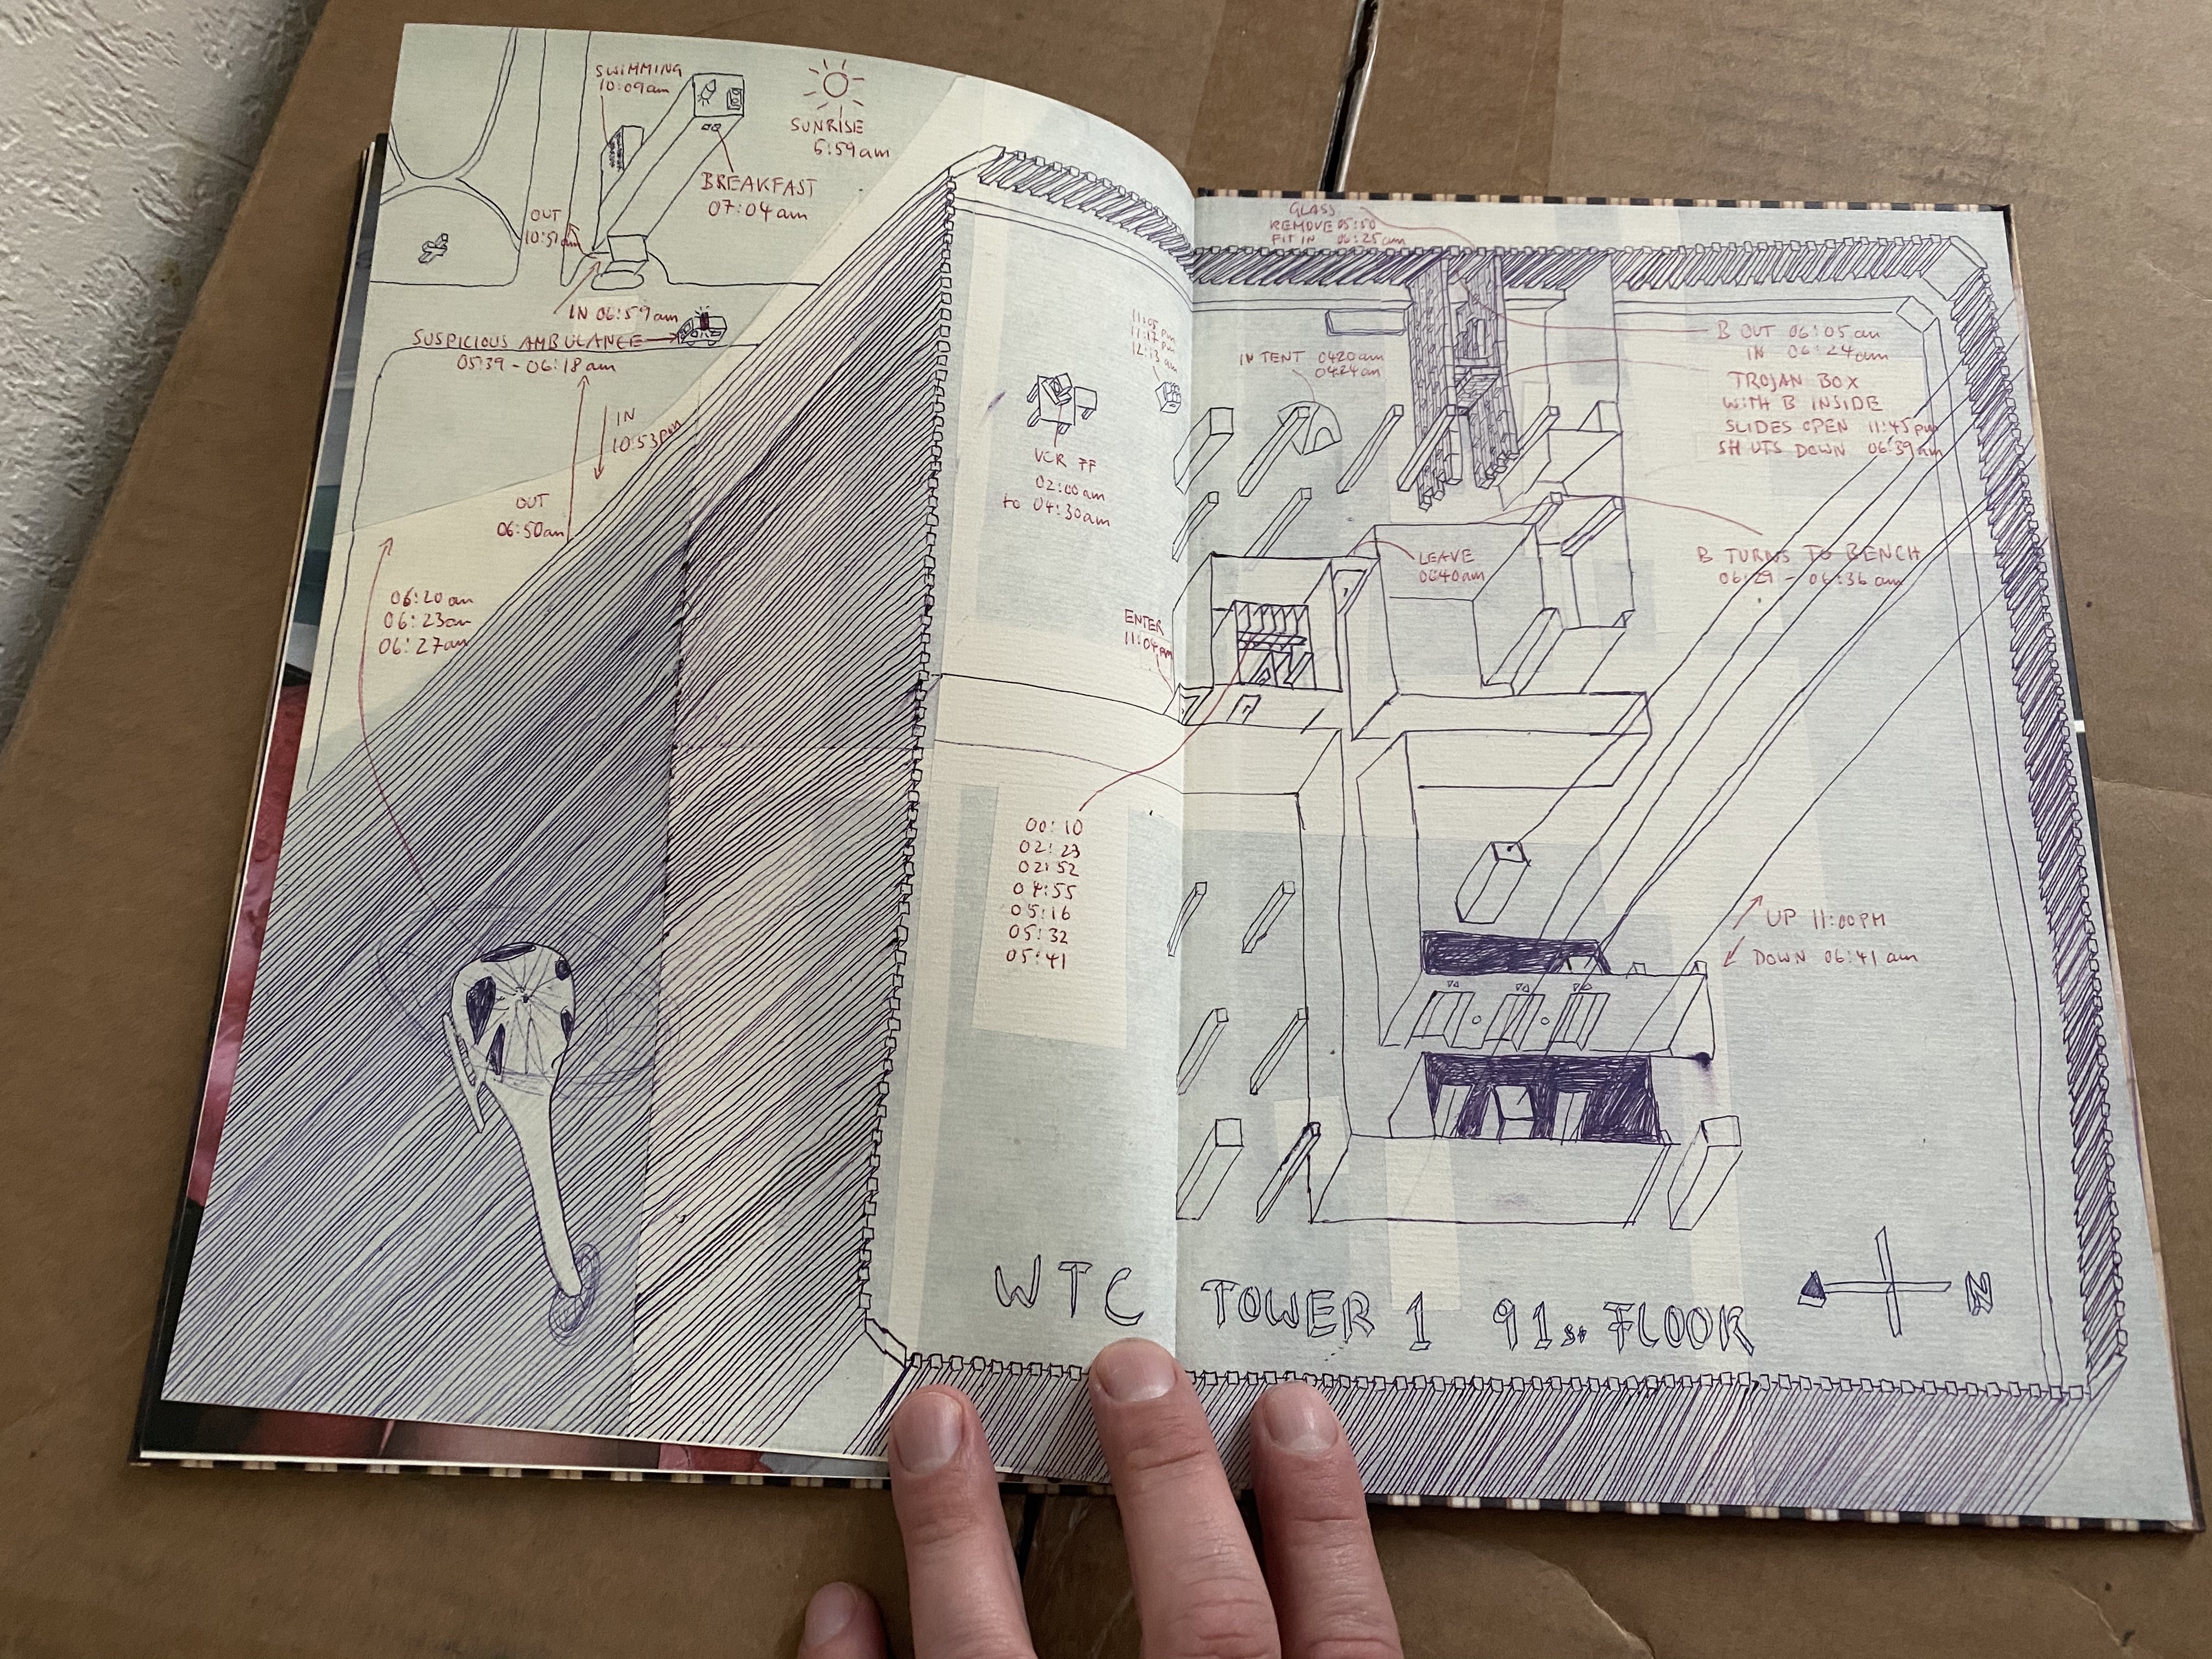 SWIMMING
10:09am
SUNRISE
5:59am
BREAKFAST
07:04am
OUT
10:51am
IN 06:59am
SUSPICIOUS AMBULANCE
05:39 - 06:18am
IN
10:53pm
OUT
06:50am
06:20am
06:23am
06:27am
11:05pm
11:12pm
12:13am
VCR FF
02:00am
to 04:30am
ENTER
11:04pm
00:10
02:23
02:52
04:55
05:16
05:32
05:41
GLASS
REMOVE 05:50
FIT IN 06:25am
IN TENT 0420am
0424am
B OUT 06:05am
IN 06:24am
TROJAN BOX
WITH B INSIDE
SLIDES OPEN 11:45pm
SHUTS DOWN 06:39am
LEAVE
0640am
B TURNS TO BENCH
06:29 - 06:36am
UP 11:00PM
DOWN 06:41am
WTC TOWER 1 91st FLOOR
N